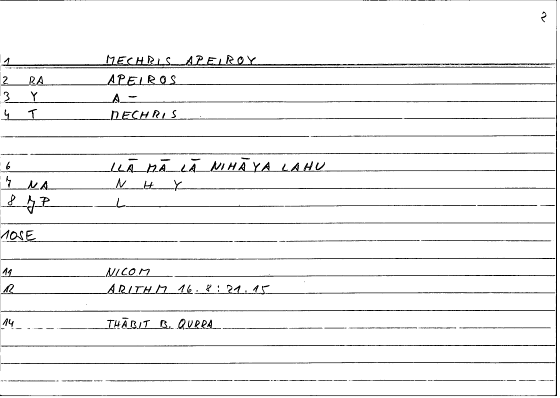 2
1 MECHRIS APEIROY
2 RA APEIROS
3 Y A -
4 T MECHRIS
6 ILĀ MĀ LĀ NIHĀYA LAHU
7 NA N H Y
8 P L
10SE
11 NICOM
12 ARITHM 16.8:21.15
14 THĀBIT B. QURRA